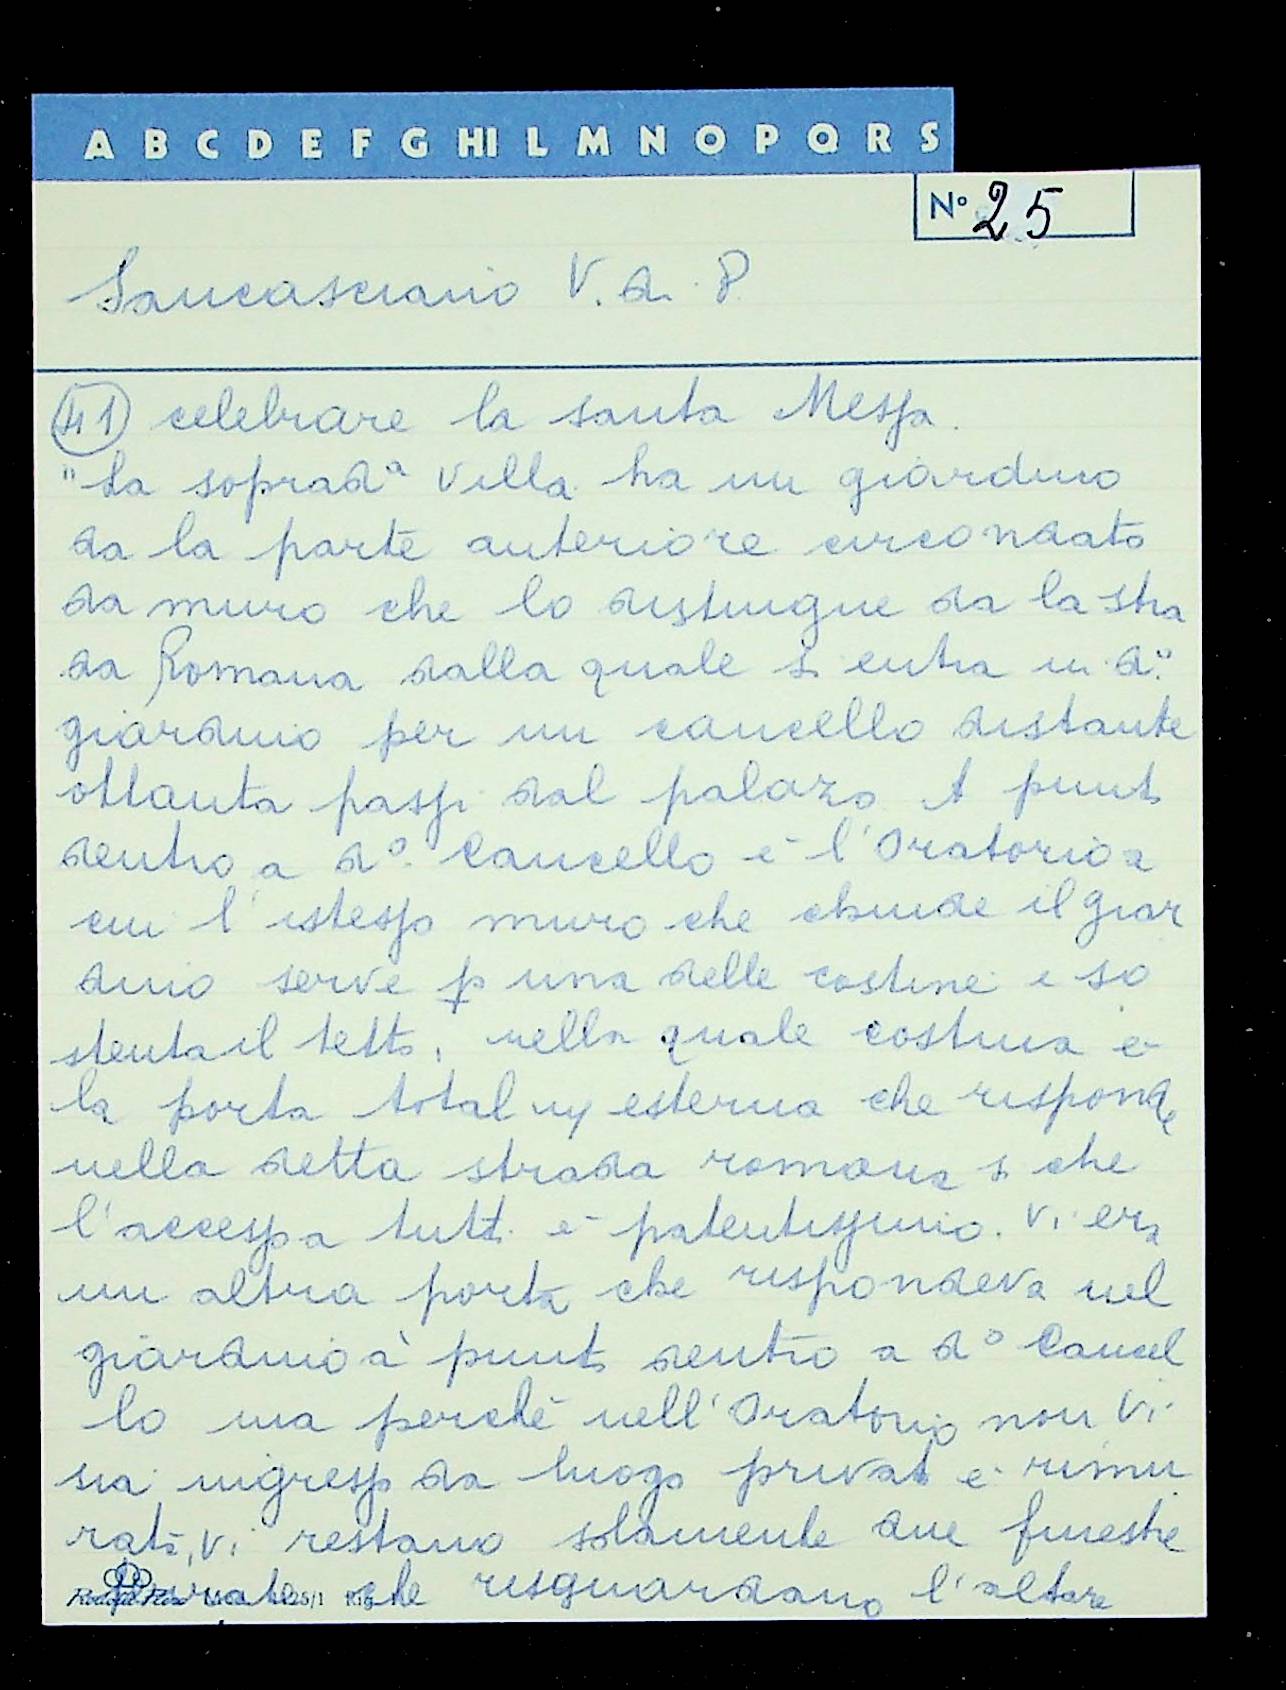 A B C D E F G HI L M N O P Q R S
N° 25
Sancasciano V. d. P.
41 celebrare la santa Messa.
"La soprad.ª Villa ha un giardino
da la parte anteriore circondato
da muro che lo distingue da la stra
da Romana dalla quale si entra in d.º
giardino per un cancello distante
ottanta passi dal palazo A punto
dentro a d.º Cancello è l'Oratorio a
cui l'istesso muro che chiude il giar
dino serve p una delle costine e so
stenta il tetto, nella quale costina è
la porta total esterna che risponde
nella detta strada romana si che
l'accesso a tutti è patentissimo. Vi era
un altra porta che rispondeva nel
giardino à punto dentro a d.º Cancel
lo ma perchè nell'Oratorio non vi
sia ingresso da luogo privato è rimu
rata, vi restano solamente due finestre
che risguardano l'altare